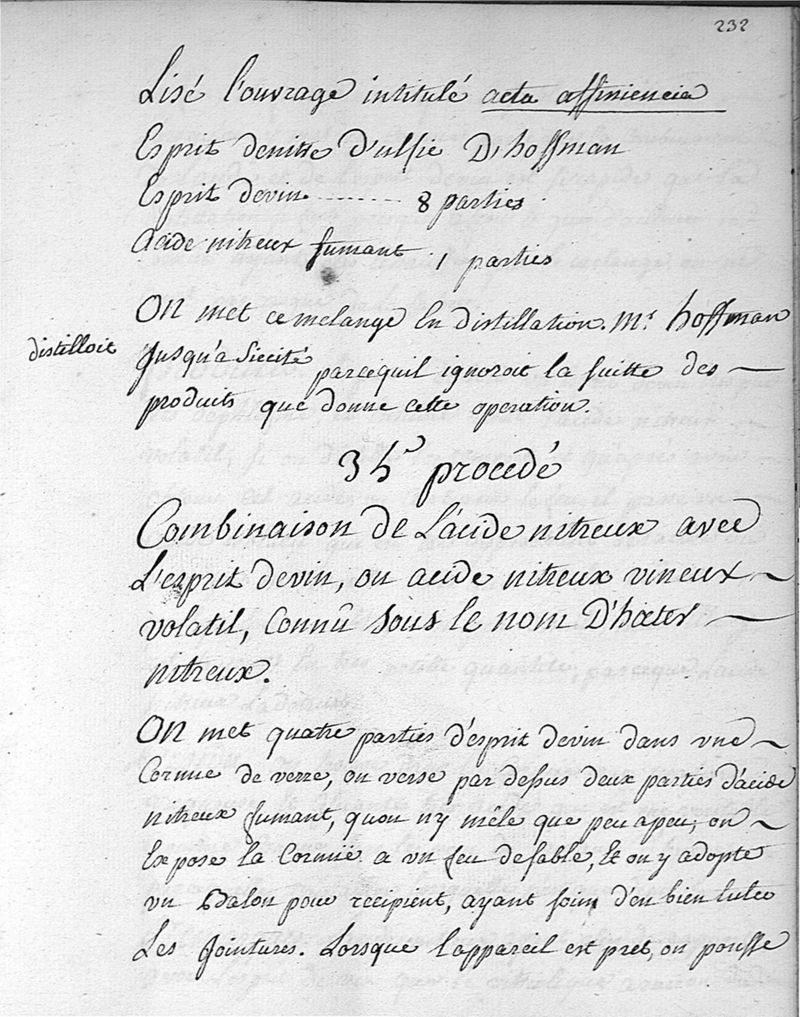 232
Lisé l'ouvrage intitulé acta affiniencia
Esprit denitre d'ulsié D'hoffman
Esprit devin ........ 8 parties
acide nitreux fumant 1 parties
On met ce melange En distillation. Mr hoffman
distilloit
Jusqu'a Siccité parcequil ignoroit la suitte des
produits que donne cette operation.
35e procedé
Combinaison de L'acide nitreux avec
L'esprit devin, ou acide nitreux vineux
volatil, Connû sous le nom D'hæter
nitreux.
On met quatre parties d'esprit devin dans vne
Cornue de verre, on verse par dessus deux parties d'acide
nitreux fumant, quon n'y mêle que peu apeu; on
Expose la Cornüe a vn feu desable, & on y adopte
vn Balon pour recipient, ayant soin d'en bien luter
Les Jointures. Lorsque l'appareil est pret, on pousse